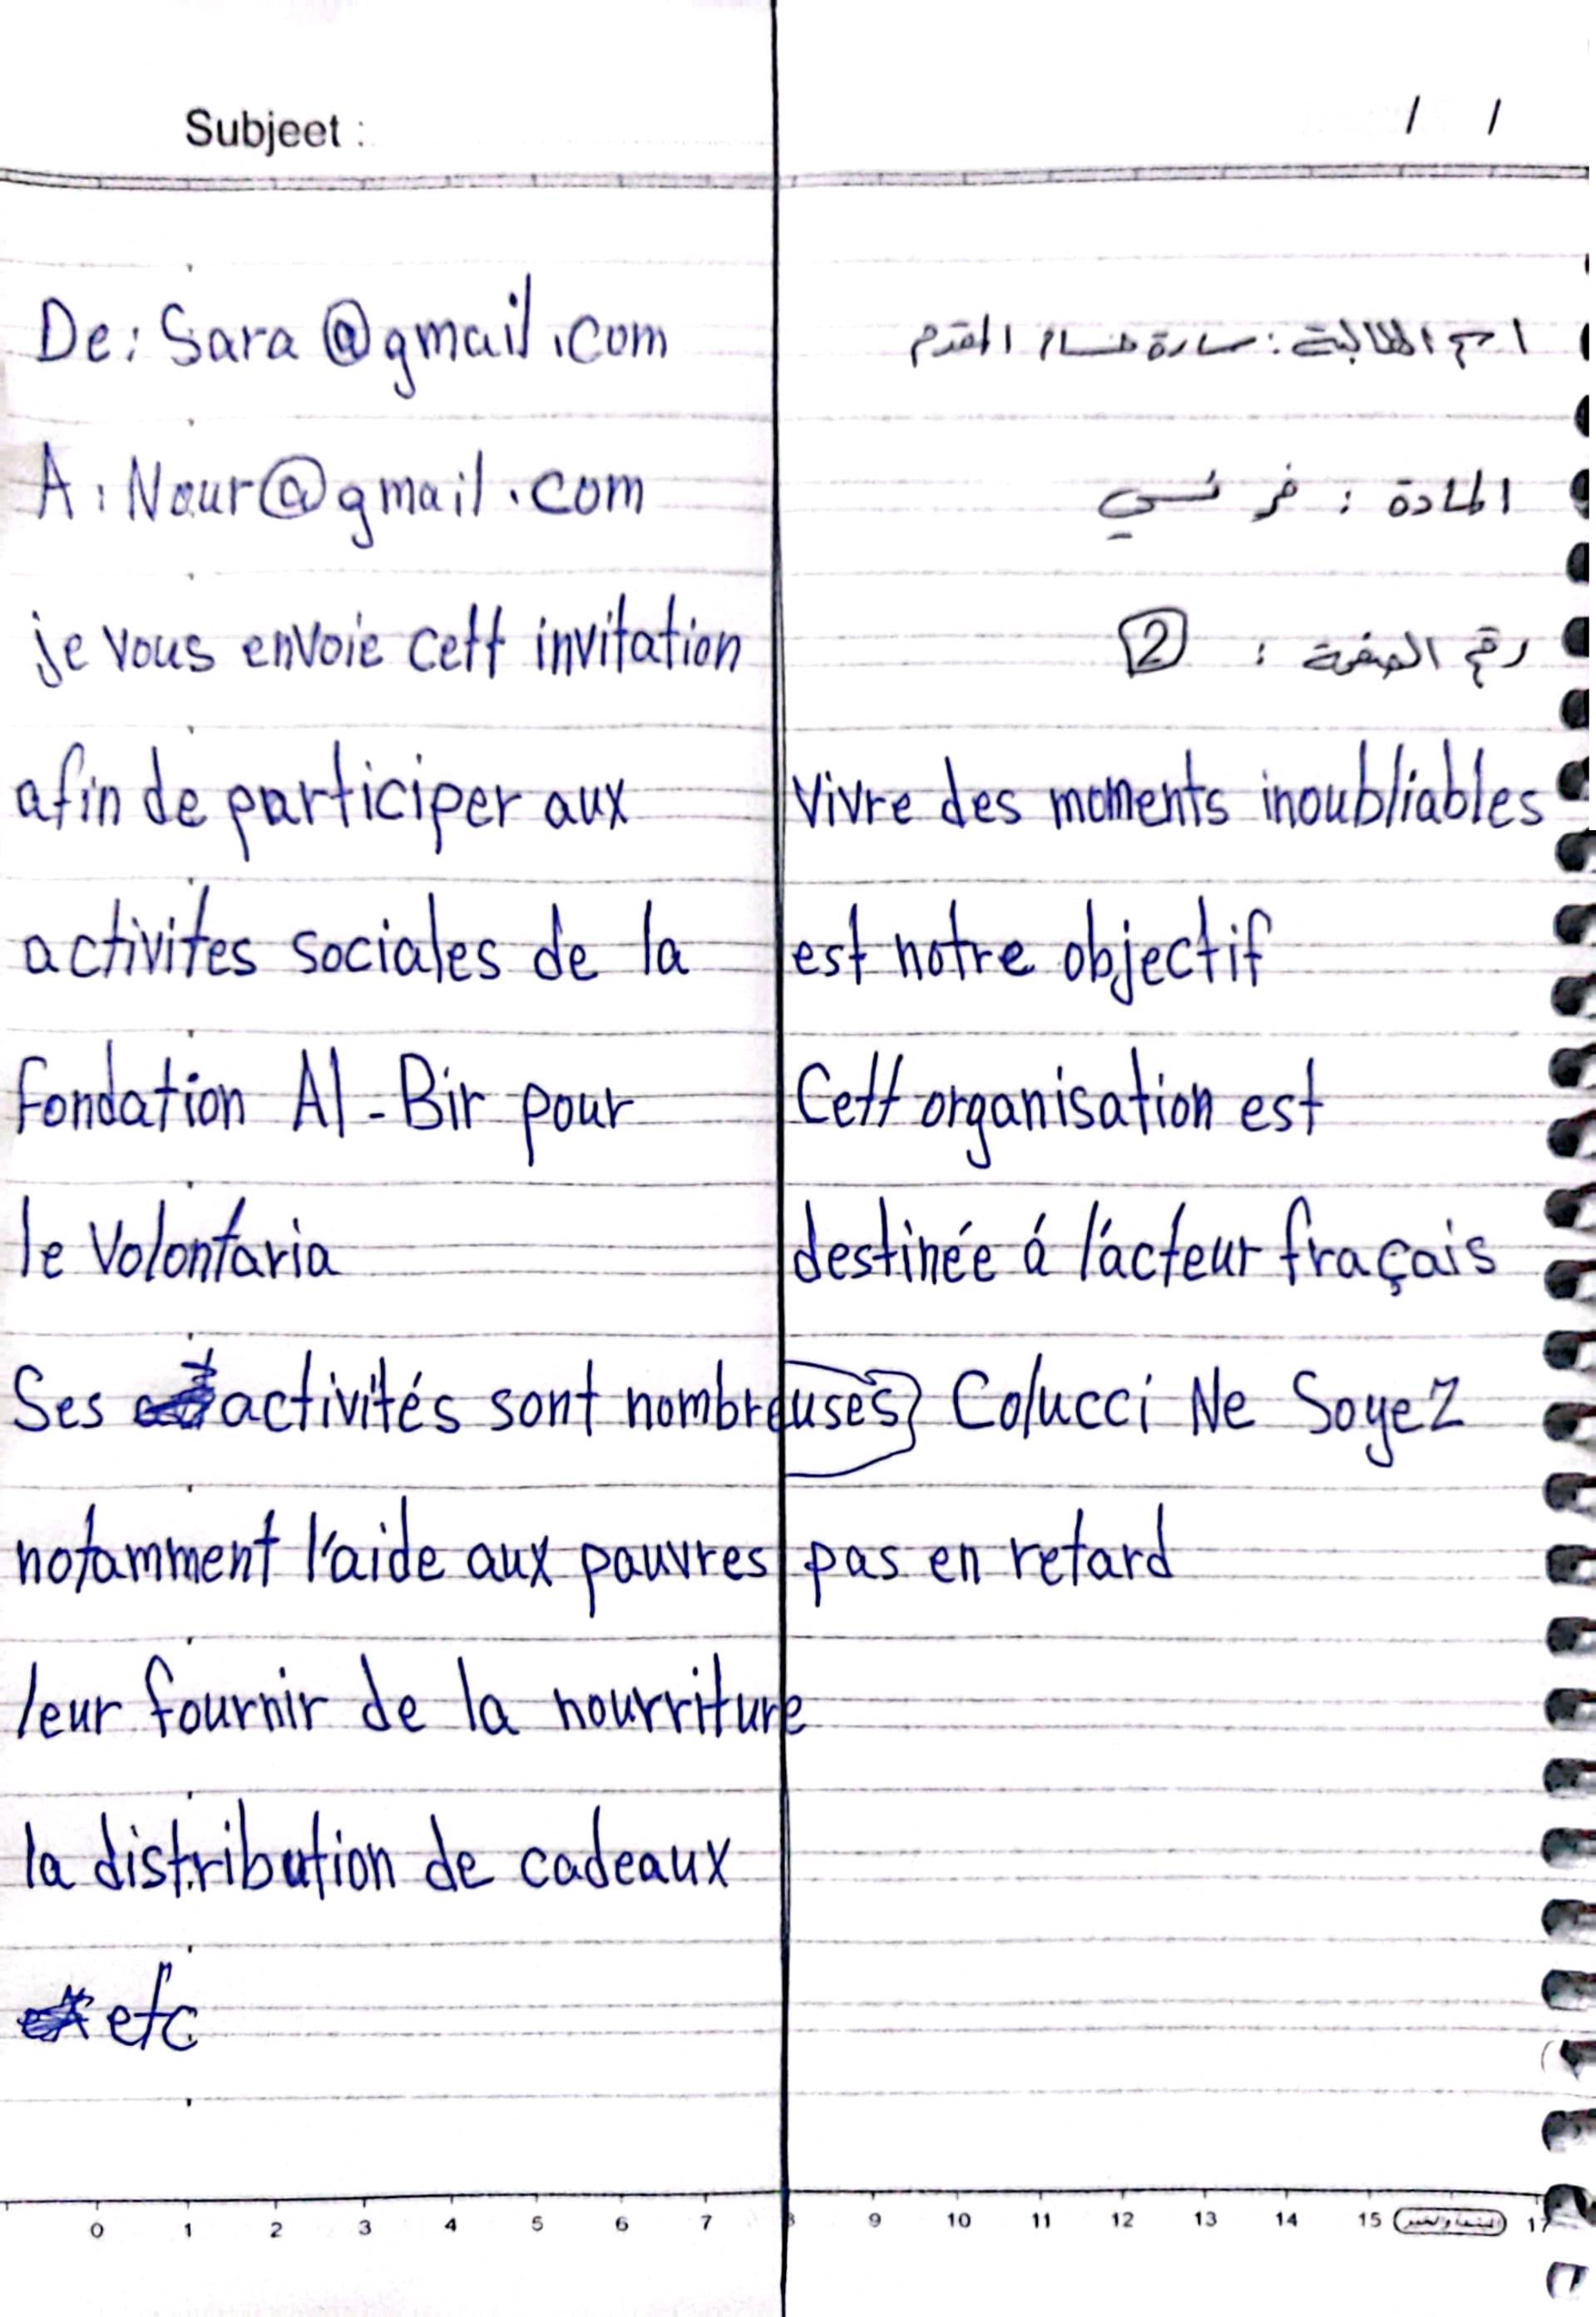 Subject :
/ /
De: Sara @gmail.com
A: Nour@gmail.com
je vous envoie cett invitation
afin de participer aux
activites sociales de la
fondation Al-Bir pour
le Volontaria
Ses activités sont nombreuses
notamment l'aide aux pauvres
leur fournir de la nourriture
la distribution de cadeaux
etc
اسم الطالبة: سارة حسام المقدم
المادة : فرنسي
رقم الصفحة : 2
Vivre des moments inoubliables
est notre objectif
Cett organisation est
destinée á l'acteur fraçais
Colucci Ne Soyez
pas en retard
0 1 2 3 4 5 6 7 8 9 10 11 12 13 14 15 17